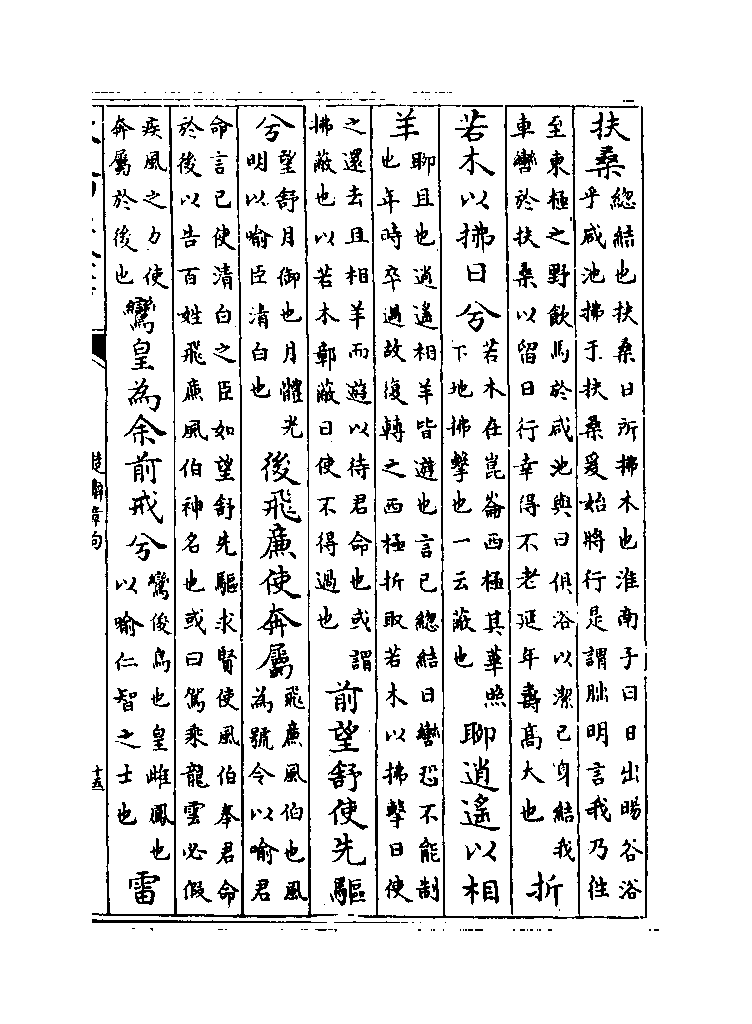 扶桑緫結也扶桑日所拂木也淮南子曰日出暘谷浴乎咸池拂于扶桑爰始將行是謂朏明言我乃往
至東極之野飲馬於咸池與日俱浴以潔已身結我車轡於扶桑以留日行幸得不老延年壽高大也折
若木以拂日兮若木在崑崙西極其華照下地拂擊也一云蔽也聊逍遙以相
羊聊且也逍遙相羊皆遊也言已緫結日轡恐不能制也年時卒過故復轉之西極折取若木以拂擊日使
之還去且相羊而遊以待君命也或謂拂蔽也以若木鄣蔽日使不得過也前望舒使先驅
兮望舒月御也月體光明以喻臣清白也後飛廉使奔屬飛廉風伯也風為號令以喻君
命言已使清白之臣如望舒先驅求賢使風伯奉君命於後以告百姓飛廉風伯神名也或曰駕乘龍雲必假
疾風之力使奔屬於後也鸞皇為余前戒兮鸞俊鳥也皇雌鳳也以喻仁智之士也雷
楚辭章句
十五